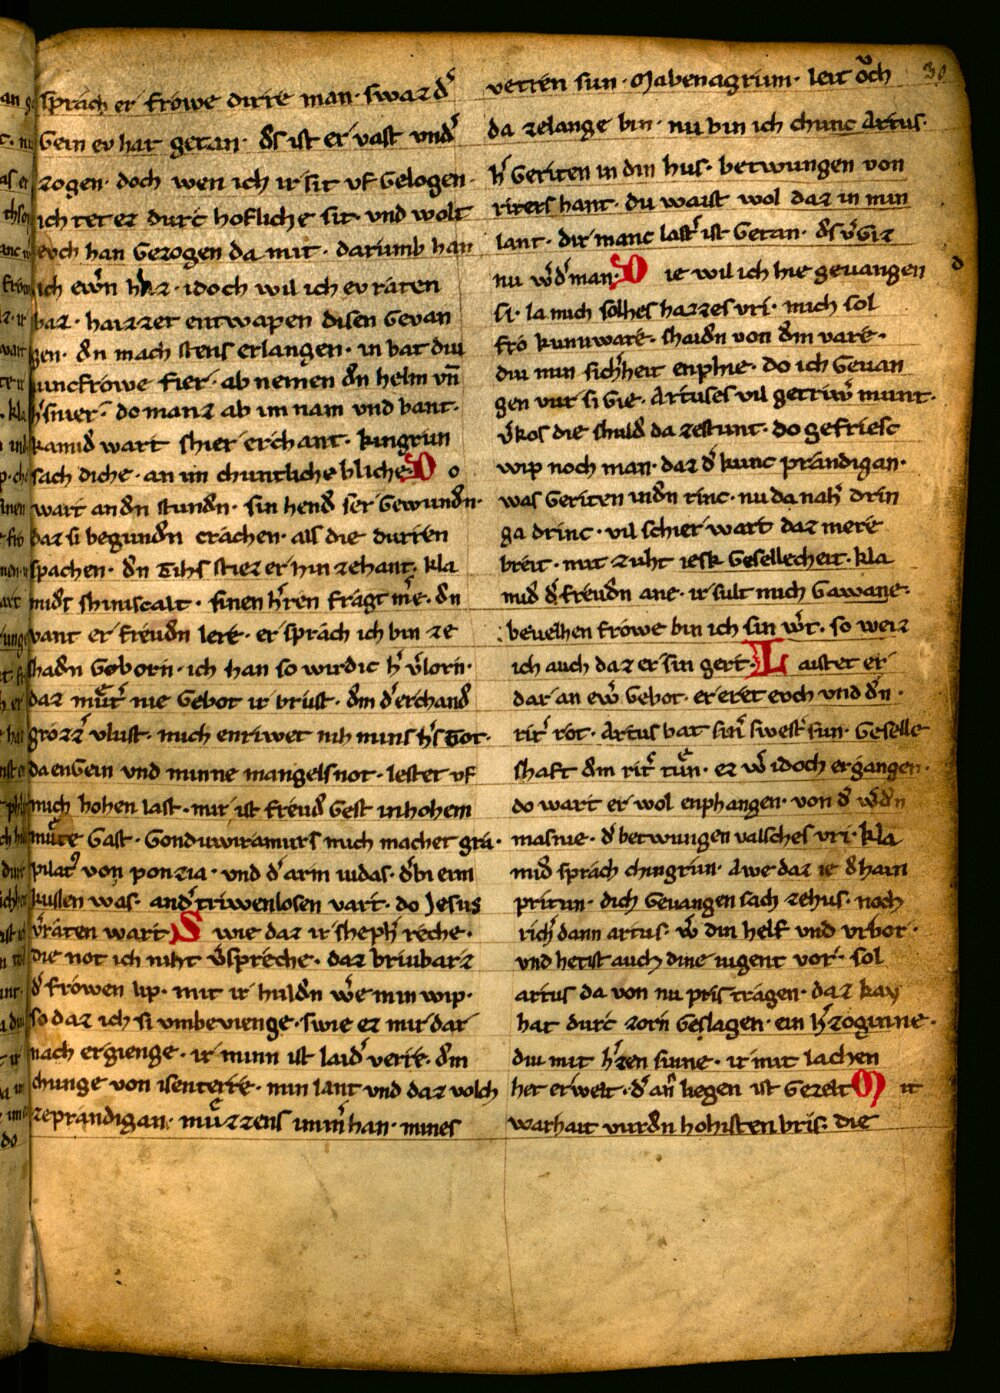 sprach er frowe dirre man · swaz dͬ
gein ev hat getan · ds ist er vast undͬ
zogen · doch wen ich ir sit vf gelogen ·
ich tet ez durc hofliche sit · vnd wolt
evch han gezogen da mit · darumb han
ich ewͬn haz · idoch wil ich ev raten
baz · haizzet entwapen disen gevan
gen · dn mach stens erlangen · in bat diu
iuncfrowe fier · ab nemen dn helm vn̄
hͬsnier · do manz ab im nam vnd bant ·
kamid wart shier erchant · kingrun
sach diche · an im chuntliche bliche · D o
wart an dn stundn · sin hend ser gewundn ·
daz si begundn crachen · als die durren
spachen · dn tihs stiez er hin zehant · kla
mids shiniscalt · sinen hͬren fragt mͬe · dn
vant er freudn lere · er sprach ich bin ze
shadn geborn · ich han so wirdic hͬ vͬlorn ·
daz mv̊tͬ nie gebot ir brust · dm dͬ erchand
grozzͬ vlust · mich enriwet niht mins hͬs tot ·
da engein vnd minne mangels not · lestet vf
mich hohen last · mir ist freud gest in hohem
mv̊te gast · Gondwiramurs mich machet gra ·
pilatͬ von ponzia · vnd dͬ arm iudas · dͬ bi eim
kussen was · an dͬ triwenlosen vart · do Jesus
vͬraten wart S wie daz ir shephͬ reche ·
die not ich niht vͬspreche · daz briubarz
dͬ frowen lip · mit ir huldn wͬe min wip ·
so daz ich si vmbevienge · swie ez mir dar
nach ergienge · ir minn ist laidͬ verre · dm
chunge von isenterre · min lant vnd daz volch
zeprandigan · mv̊zzens immͬ han · mines
vettern sun · Mabenagrim · leit och
da zelange bin · nu bin ich chunc Artus ·
hͬ geriten in din hus · betwungen von
riters hant · du waist wol daz in min
lant · dir manc lastͬ ist getan · ds vͬgiz
nu wͬd man · D ie wil ich hie gevangen
si · la mich solhes hazzes vri · mich sol
fro kunnware · shaidn von dm vare ·
diu min sichͬheit enphie · do ich gevan
gen vur si gie · Artuses vil getriwͬ munt ·
vͬkos die shuld da zestunt · do gefriesc
wip noch man · daz dͬ kunc prandigan ·
was geriten in dn rinc · nu da nahͬ drin
ga drinc · vil schier wart daz mere
breit · mit zuht iesk gesellecheit · kla
mid dͬ freudn ane · ir sult mich Gawane ·
bevelhen frowe bin ich sin wͬt · so weiz
ich auch daz er sin gert · L aistet er
dar an ewͬ gebot · er eret evch vnd dn ·
ritͬ rot · Artus bat sinͬ swestͬ sun · geselle
shaft dm ritͬ tv̊n · ez wͬ idoch ergangen ·
do wart er wol enphangen · von dͬ wͬdn
masnie · dͬ betwungen valsches vri · kla
mid sprach chingrun · Awe daz ie dhain
pritun · dich gevangen sach zehus · noch
richͬ dann artus · wͬ din helf vnd vrbor ·
vnd hetist auch dine iugent vor · sol
artus da von nu pris tragen · daz kay
hat durc zorn geslagen · ein hͬzoginne ·
diu mit hͬzen sinne · ir mit lachen
het erwelt · dͬ anͬ liegen ist gezelt M it
warhait vurdn hohisten bris · die
30
d